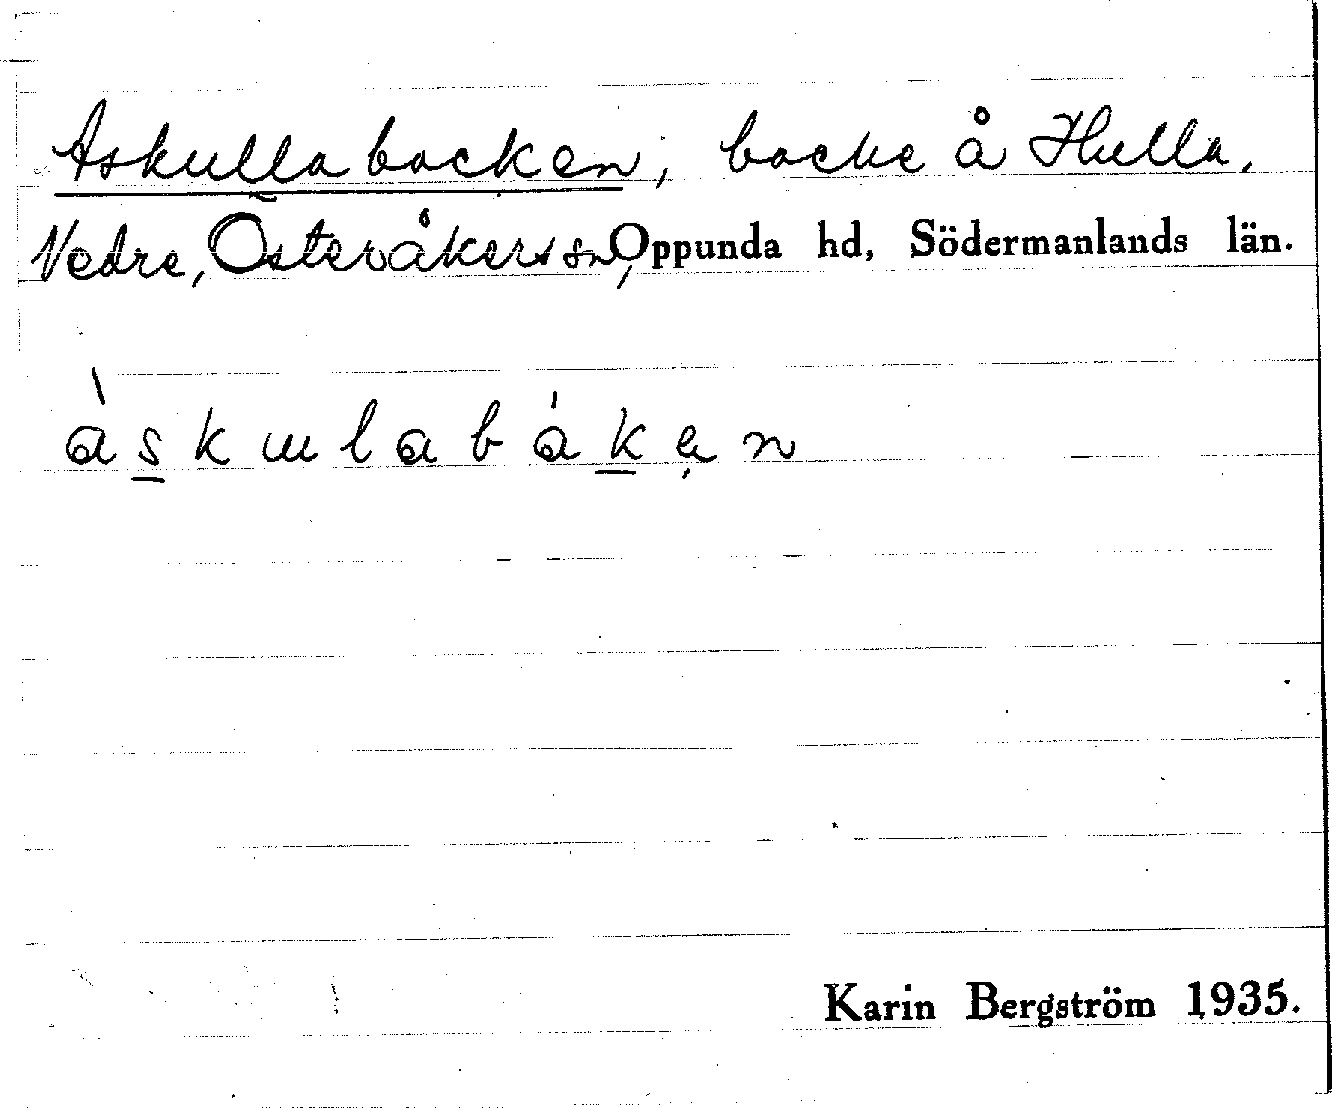 Askullabacken, backe å Hulla,
Vedre, Österåkers sn, Oppunda hd, Södermanlands län.
àskɯlabákən
Karin Bergström 1935.